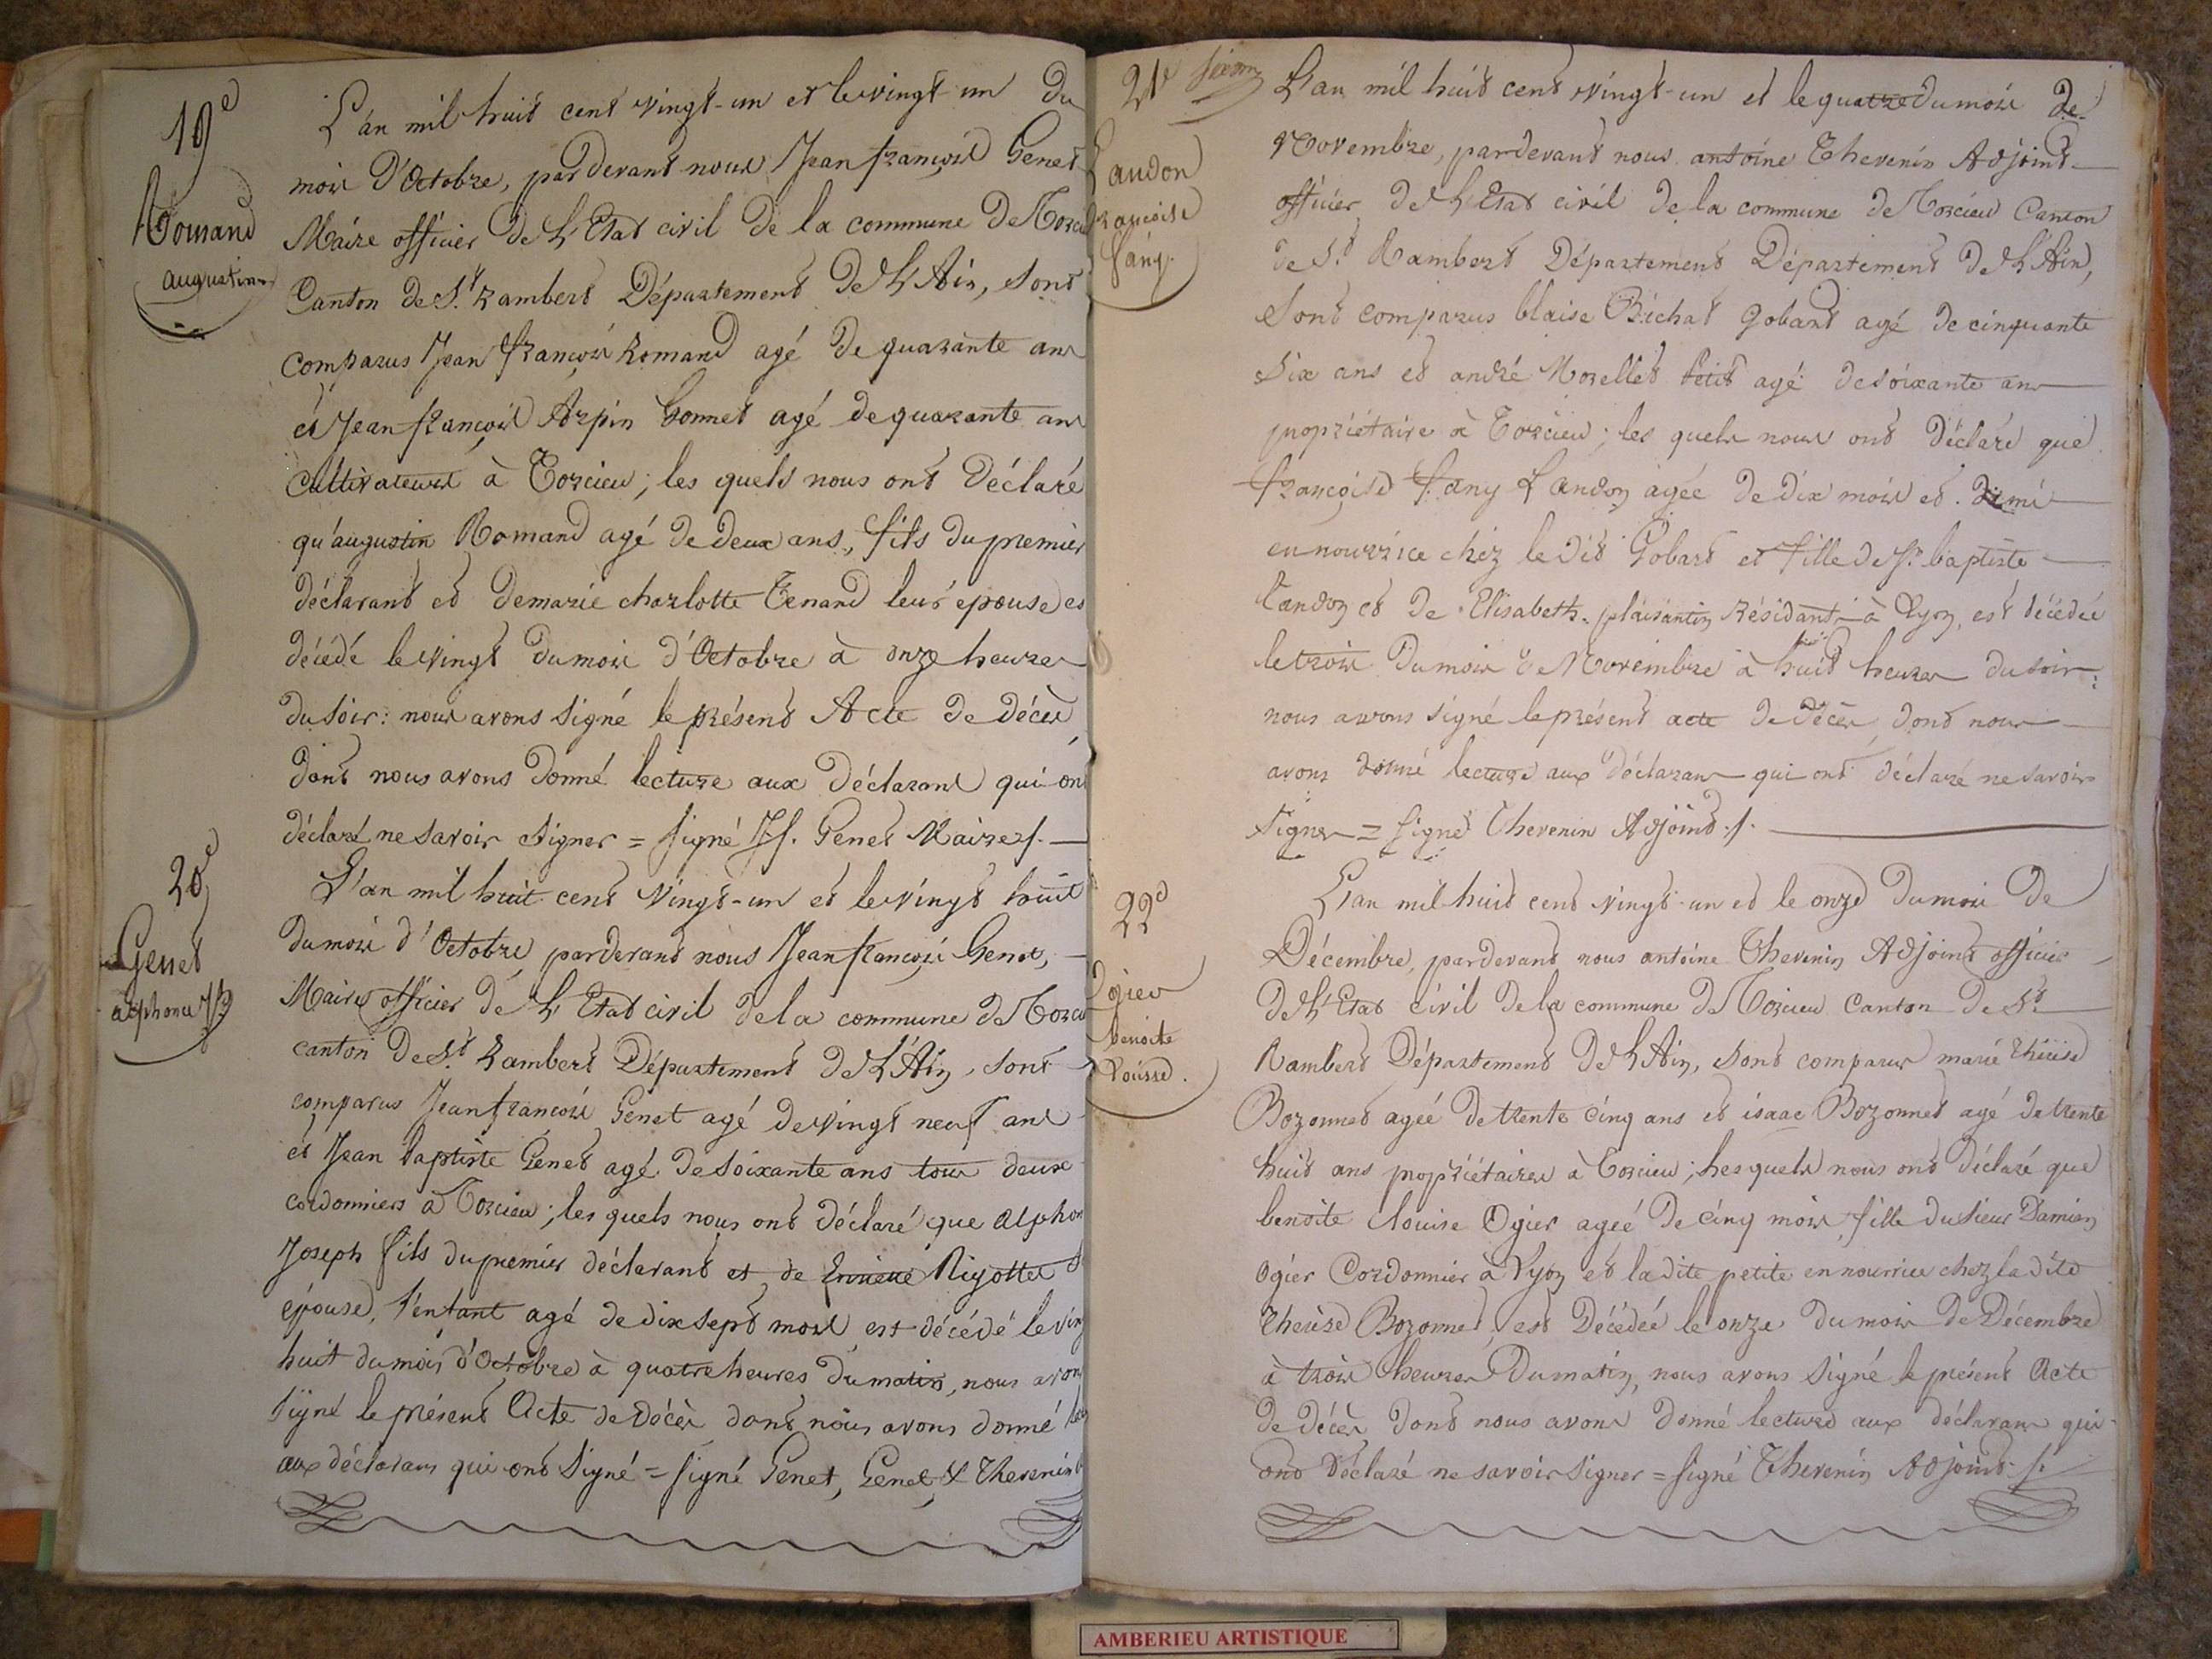 19e
Romand
augustin
L'an mil huit cent vingt-un et le vingt-un du
mois d'Octobre, pardevant nous Jean françois Genet
Maire officier de L'Etat civil de la commune de Torcieu
Canton de St. Rambert Département de L'Ain, sont
comparus Jean françois Romand agé de quarante ans
et Jean françois Arpin bonnet agé de quarante ans
Cultivateurs à Torcieu; les quels nous ont Déclaré
qu'augustin Romand agé de deux ans, fils du premier
déclarant et de marie charlotte Tenand leur épouse es
décédé le vingt du mois d'Octobre à onze heures
du soir: nous avons signé le présent Acte de décès
dont nous avons donné lecture aux Déclarans qui on
déclaré ne savoir signer = signé Jf. Genet Maire /. —
20e
Genet
alphonce Jh
L'an mil huit cent vingt-un et le vingt huit
du mois d'Octobre, pardevant nous Jean françois Genet,
Maire officier de L'Etat civil de la commune de Torcieu
canton de St. Rambert Département de L'Ain, sont
comparus Jean françois Genet agé de vingt neuf ans
et Jean baptiste Genet agé de soixante ans tous deux
cordonniers à Torcieu; les quels nous ont déclaré que alphon
Joseph fils du premier déclarant et de Rigottet
épouse, l'enfant agé de dix sept mois est décédé le ving
huit du mois d'Octobre à quatre heures du matin, nous avons
signé le présent Acte de décès dont nous avons donné lec
aux déclarans qui ont signé = signé Genet, Genet & Thevenin
21e
Landon
francoise
fany.
L'an mil huit cent vingt-un et le quatre du mois de
Novembre, pardevant nous antoine Thevenin Adjoint
officier de L'Etat civil de la commune de Torcieu Canton
de St. Rambert Département Département de L'Ain,
Sont comparus blaise Bichat gobant agé de cinquante
six ans et andré Morellet petit agé de soixante ans
propriétaire à Torcieu; les quels nous ont Déclaré que
françoise fany Landon agée de dix mois et demi
en nourrice chez le dit Gobant et fille de Sr. baptiste
Landon et de Elisabeth plaisantin Résidant à Lyon, est décédée
le trois du mois de Novembre à huit heures du soir:
nous avons signé le présent acte de décès, dont nous
avons donné lecture aux déclarans qui ont déclaré ne savoir
signer = signé Thevenin Adjoint ./.
22e
Ogier
benoite
Louise.
L'an mil huit cent vingt-un et le onze du mois de
Décembre, pardevant nous antoine Thevenin Adjoint officier
de L'Etat civil de la commune de Torcieu Canton de St.
Rambert Département de L'Ain, sont comparus marie thérèse
Bozonnet agée de trente cinq ans et isaac Bozonnet agé de trente
huit ans propriétaires à Torcieu; les quels nous ont Déclaré que
benoite louise Ogier agée de cinq mois, fille du sieur Damien
ogier Cordonnier à Lyon et ladite petite en nourrice chez la dite
Therèse Bozonnet, est Décédée le onze du mois de Décembre
à trois heures du matin, nous avons signé le présent Acte
de décès, dont nous avons donné lecture aux déclarans qui
ont Déclaré ne savoir signer = signé Thevenin Adjoint ./.
AMBERIEU ARTISTIQUE